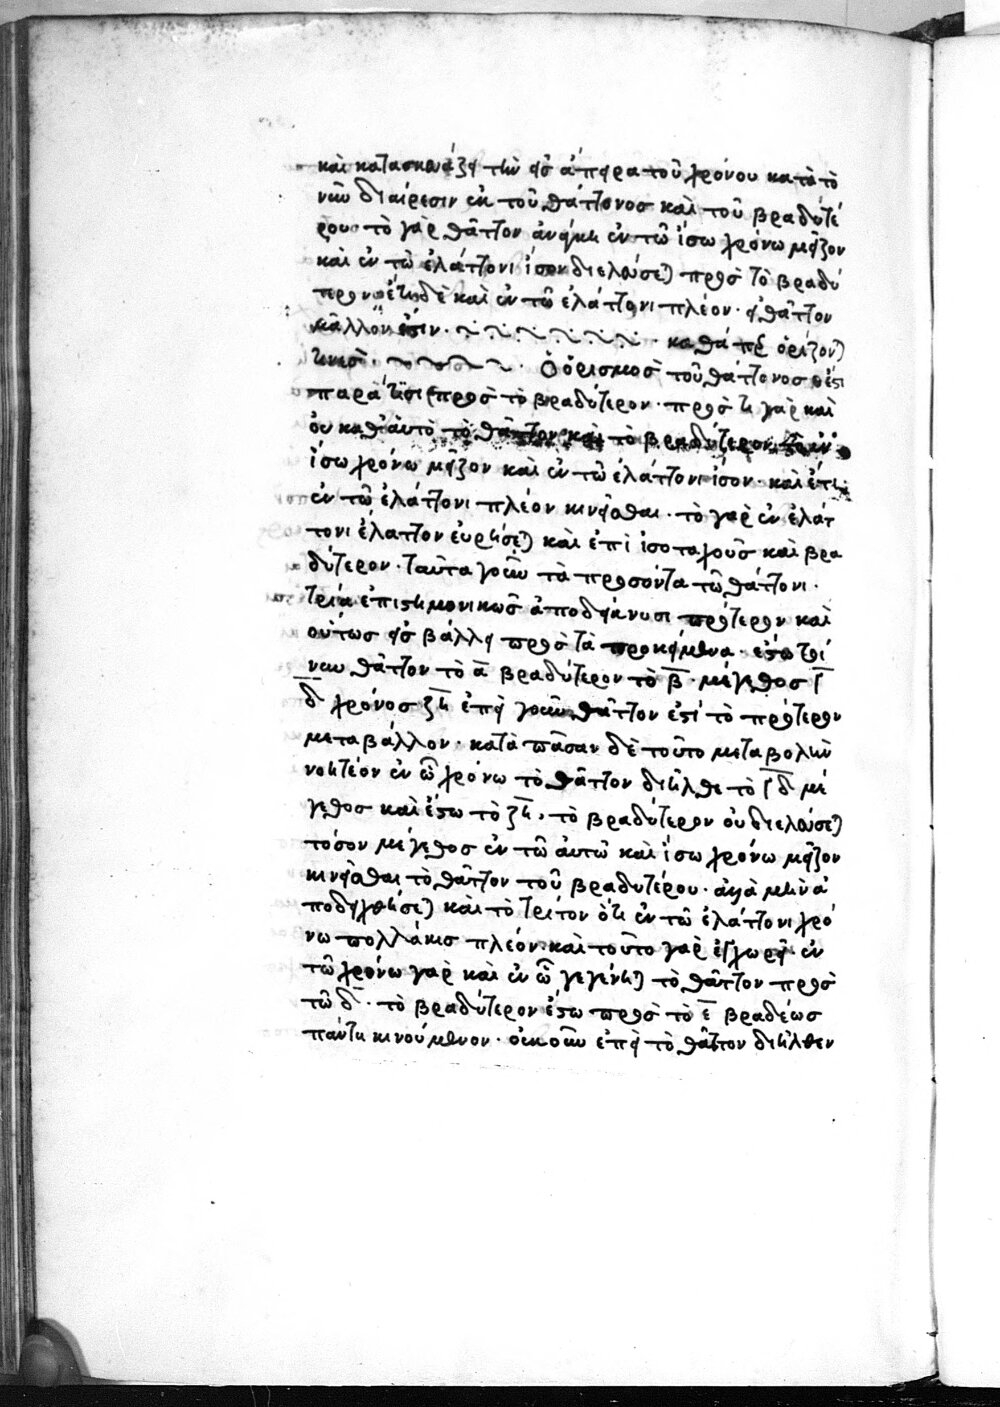 καὶ κατασκευάζει τὴν εἰς ἄπειρα τοῦ χρόνου κατὰ τὸ
νῦν διαίρεσιν ἐκ τοῦ θάττονος καὶ τοῦ βραδυτέ
ρου· τὸ γὰρ θᾶττον ἀνάγκη ἐν τῶ ἴσω χρόνω μεῖζον
καὶ ἐν τῶ ἐλάττονι ἴσον διελεύσεται πρὸς τὸ βραδύ
τερον· ἔτι δὲ καὶ ἐν τῶ ἐλάττονι πλέον· εἰ θᾶττον
μᾶλλόν ἐστιν· καθάπερ ὁρίζονται
τινές· Ὁ ὁρισμὸς τοῦ θάττονος
παρὰ τισι πρὸς τὸ βραδύτερον· πρός τι γὰρ καὶ
οὐ καθ' αὑτὸ τὸ θᾶττον καὶ τὸ βραδύτερον τὸ ἐν
ἴσω χρόνω μεῖζον καὶ ἐν τῶ ἐλάττονι ἴσον· καὶ ἔτι
ἐν τῶ ἐλάττονι πλέον κινεῖσθαι· τὸ γὰρ ἐν ἐλάτ
τονι ἔλαττον εὑρήσεται καὶ ἐπὶ ἰσοταχοῦς καὶ βρα
δύτερον· ταῦτα γοῦν τὰ προσόντα τῶ θάττονι·
τρία ἐπιστημονικῶς ἀποδείκνυσι πρότερον καὶ
οὕτως εἰσβάλλει πρὸς τὰ προκείμενα· ἔστω τοί
νυν θᾶττον τὸ α βραδύτερον τὸ β· μέγεθος γ
δ χρόνος ζη ἐπεὶ γοῦν θᾶττον ἐστὶ τὸ πρότερον
μεταβάλλον· κατὰ πᾶσαν δὲ τοῦτο μεταβολὴν
νοητέον ἐν ὧ χρόνω τὸ θᾶττον διῆλθε τὸ γδ μέ
γεθος καὶ ἔστω τὸ ζη, τὸ βραδύτερον οὐ διελεύσεται
τόσον μέγεθος ἐν τῶ αὐτῶ καὶ ἴσω χρόνω μεῖζον
κινεῖσθαι τὸ θᾶττον τοῦ βραδυτέρου· ἀλλὰ μὴν ἀ
ποδειχθήσεται καὶ τὸ τρίτον ὅτι ἐν τῶ ἐλάττονι χρό
νω πολλάκις πλέον καὶ τοῦτο γὰρ ἐγχωρεῖ· ἐν
τῶ χρόνω γὰρ καὶ ἐν ὧ γεγένηται τὸ θᾶττον πρὸς
τῶ δ· τὸ βραδύτερον ἔστω πρὸς τὸ ε βραδέως
πάντη κινούμενον· οὐκοῦν ἐπεὶ τὸ θᾶττον διῆλθεν